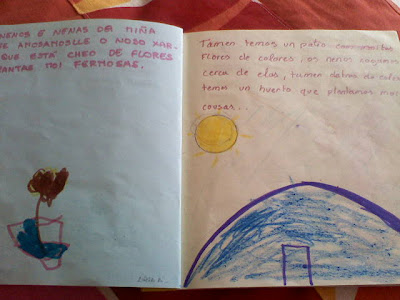 NENOS E NENAS DA MIÑA
AMOSAMOSLLE O NOSO XAR-
QUE ESTÁ CHEO DE FLORES
PANTAS MOI FERMOSAS.
Tamen temos un patio con moitas
flores de colores, os nenos xogamos
cerca de elas, tamen detras do cole
temos un huerto que plantamos moi
cousas...